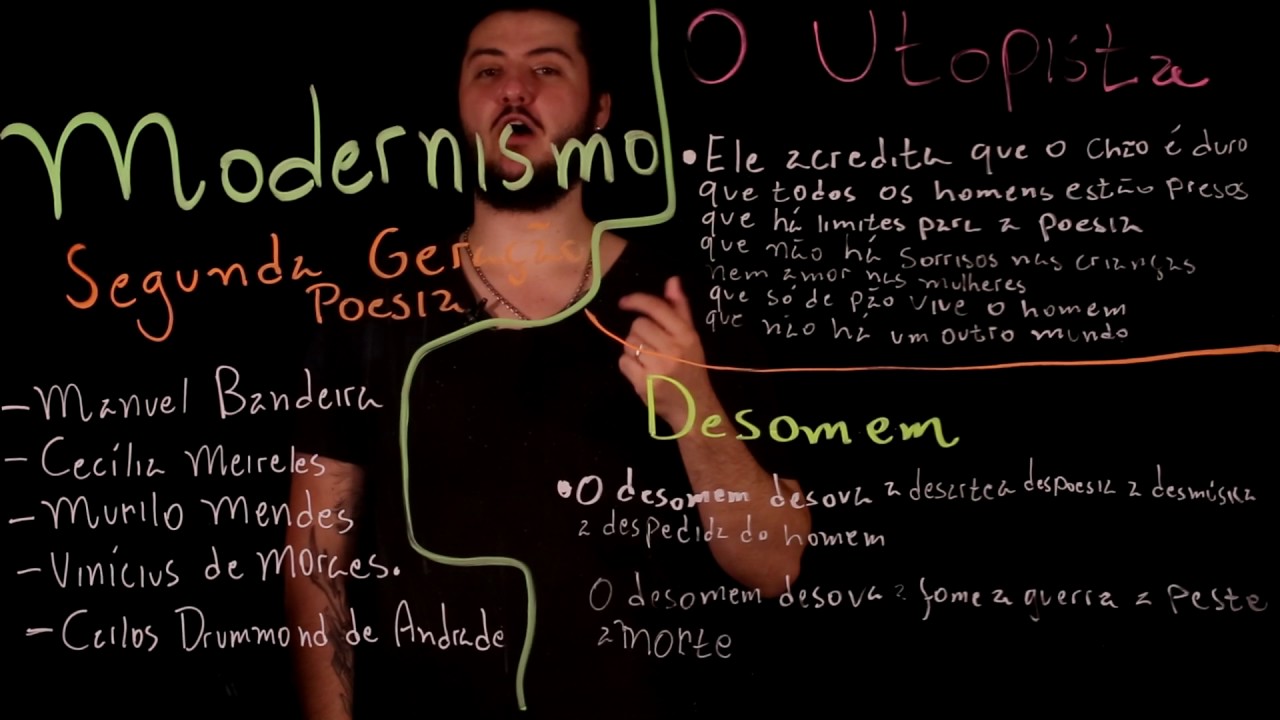 Modernismo
Segunda Geração
Poesia
- Manuel Bandeira
- Cecília Meireles
- Murilo Mendes
- Vinícius de Moraes.
- Carlos Drummond de Andrade
O Utopista
• Ele acredita que o chão é duro
que todos os homens estão presos
que há limites para a poesia
que não há sorrisos nas crianças
nem amor nas mulheres
que só de pão vive o homem
que não há um outro mundo
Desomem
• O desomem desova a desartea despoesia a desmúsica
a despedida do homem
O desomem desova a fome a guerra a peste
a morte